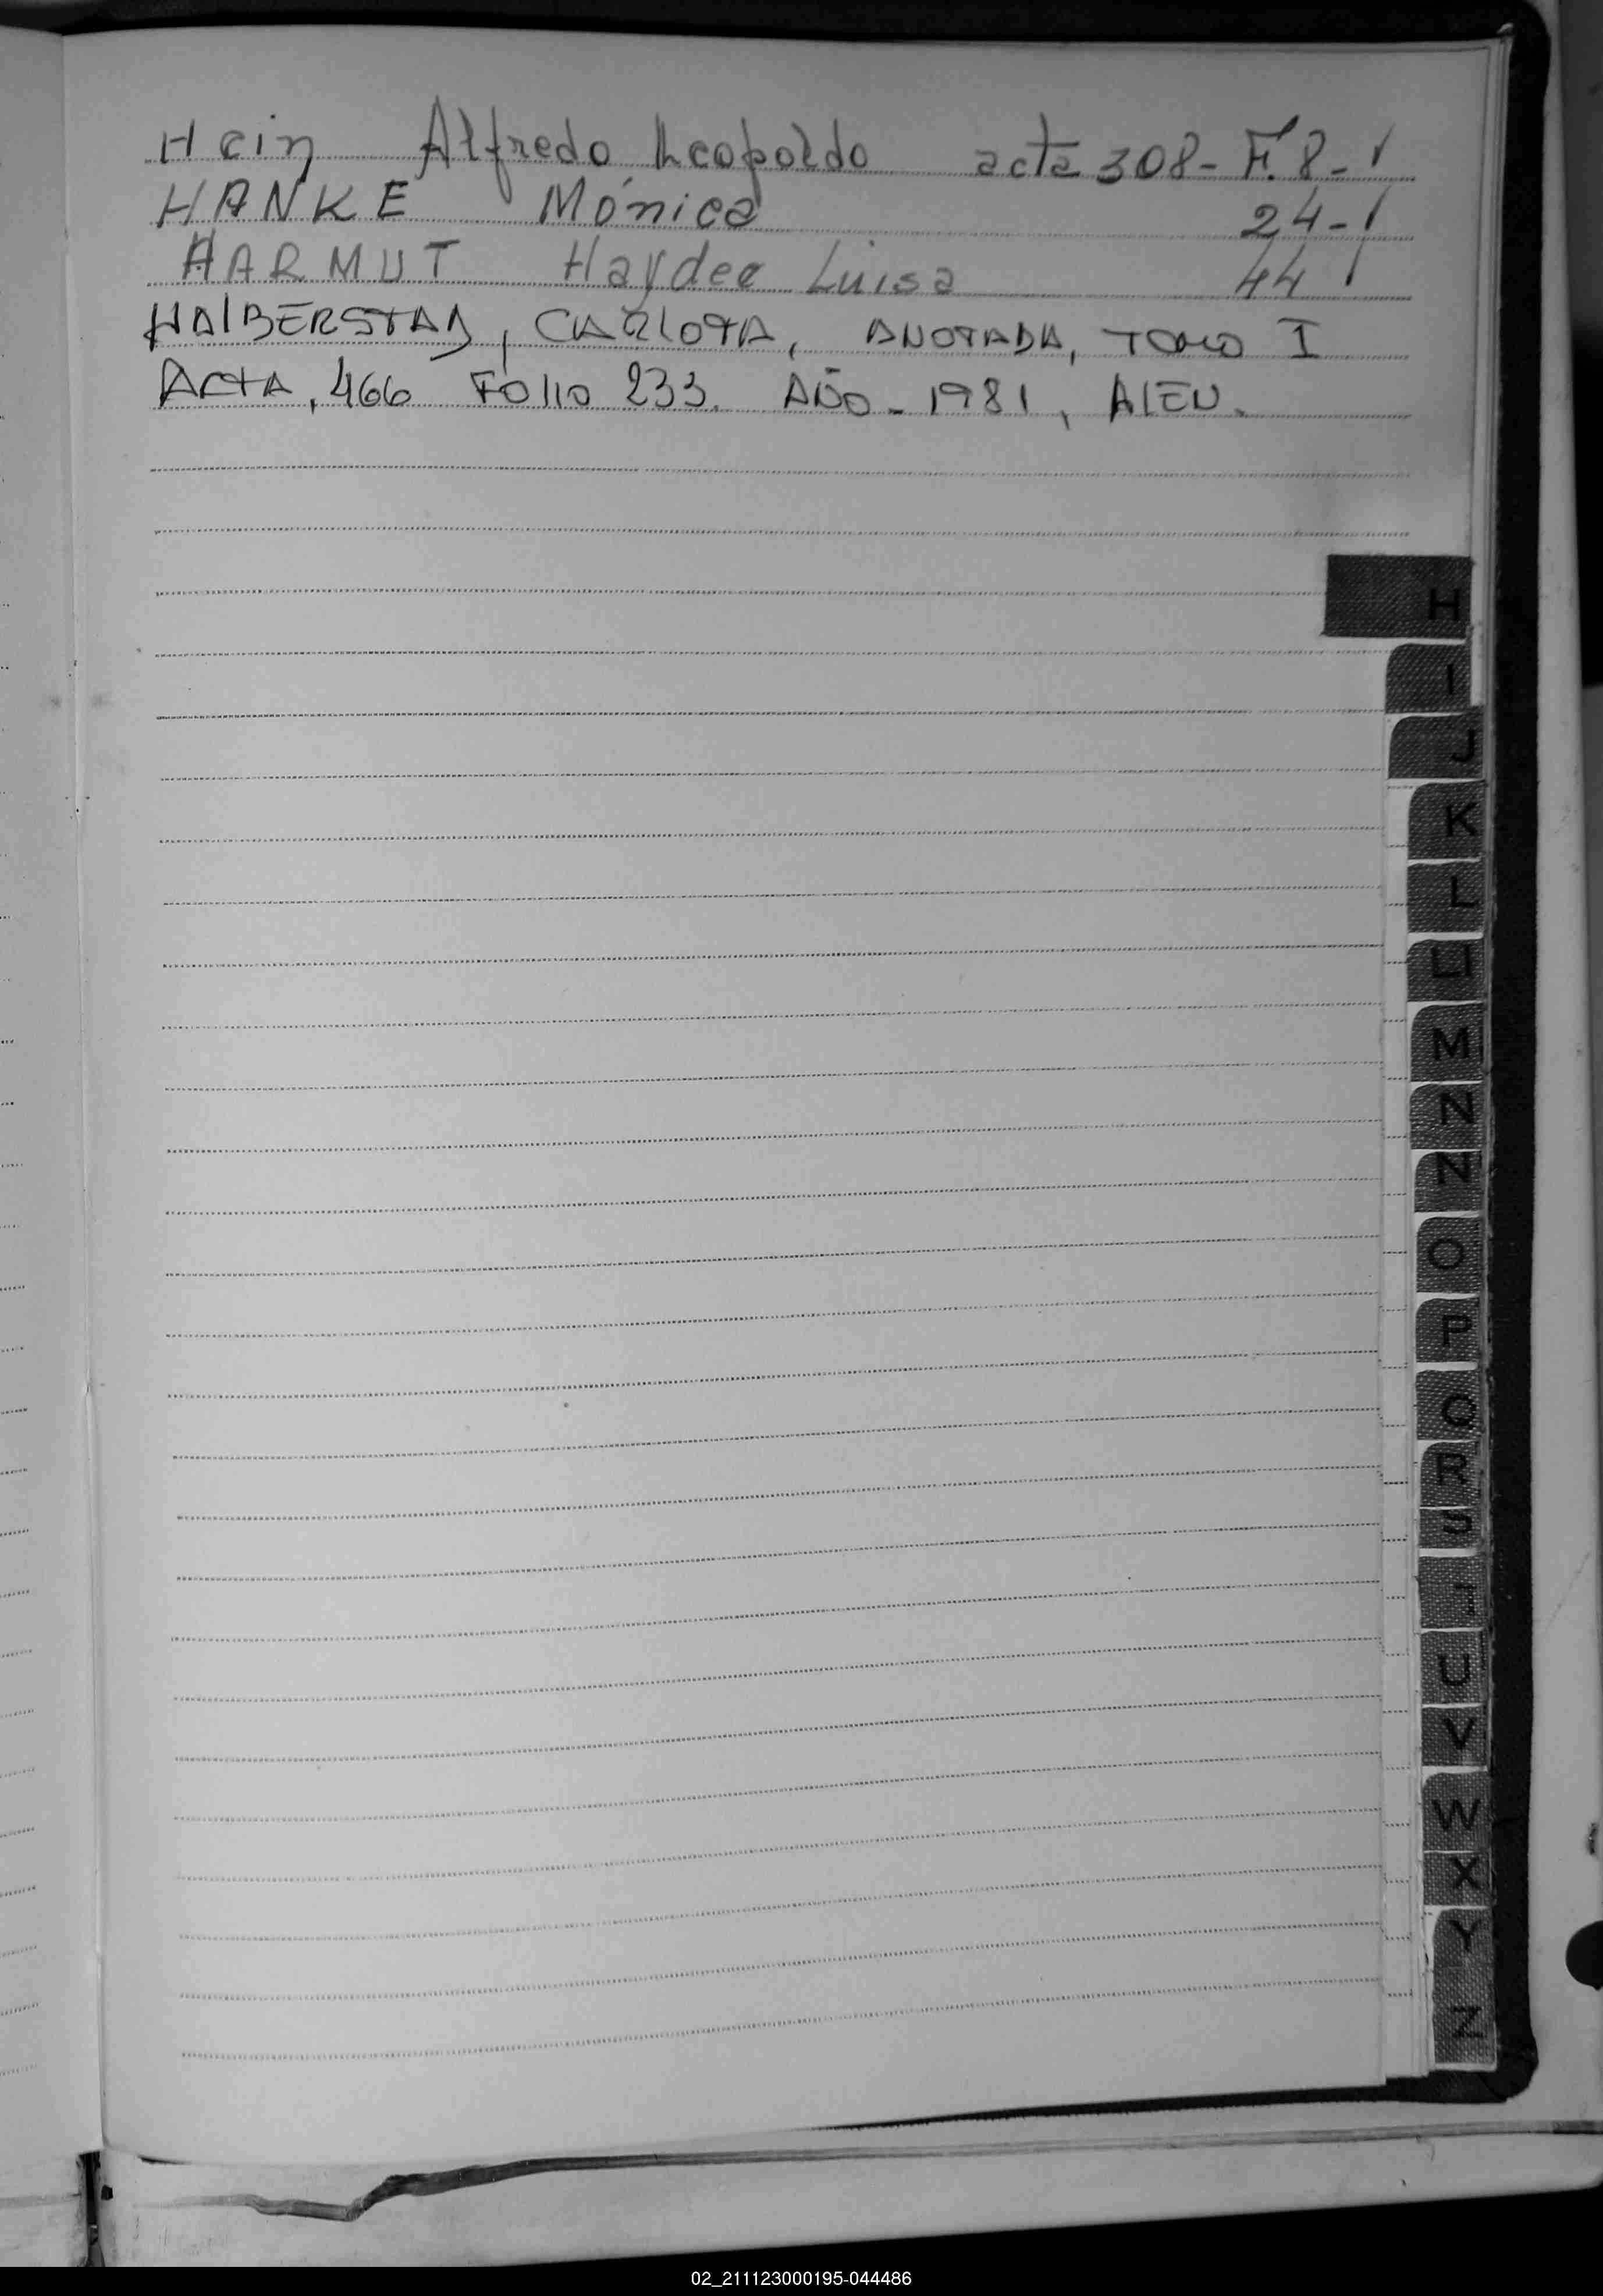 Hein Alfredo Leopoldo acta 308- F. 8- ✓
HANKE Mónica 24- ✓
HARMUT Haydee Luisa 44 ✓
HALBERSTAD, CARLOTA, ANOTADA, TOMO I
ACTA, 466 FOLIO 233. AÑO - 1981, ALEN.
H
I
J
K
L
LL
M
N
Ñ
O
P
Q
R
S
T
U
V
W
X
Y
Z
02_211123000195-044486